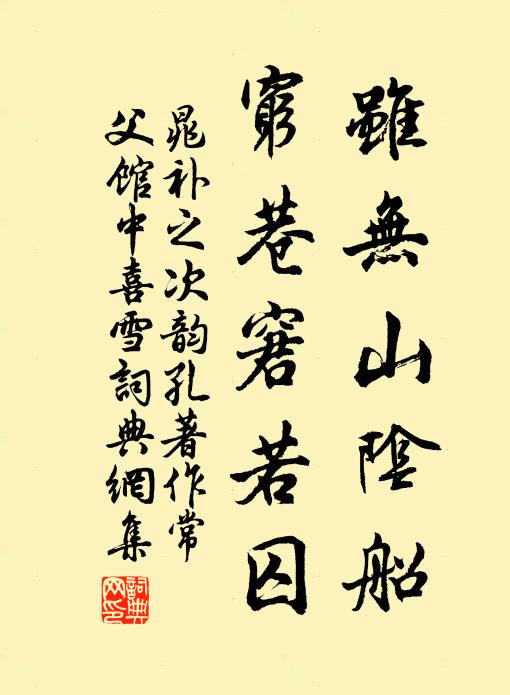 雖無山陰船
窮巷窘若囚
晁补之次韵孔著作常
父馆中喜雪詞典網集
詞典網印